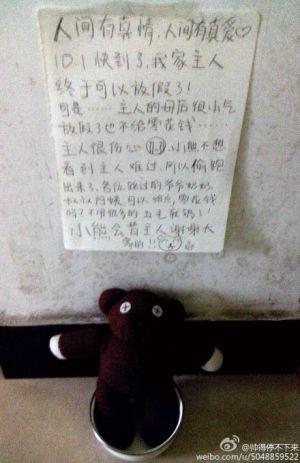 人间有真情,人间有真爱♡
10.1快到了,我家主人
终于可以放假了!
可是……主人的母后很小气
放假了也不给零花钱……
主人很伤心,小熊不想
看到主人难过,所以偷跑
出来了,各位路过的爷爷奶奶
叔叔阿姨可以给点零花钱
吗?不用很多的五毛就够!!
小熊会替主人谢谢大
家的!!!
@帅得停不下来
weibo.com/u/5048859522